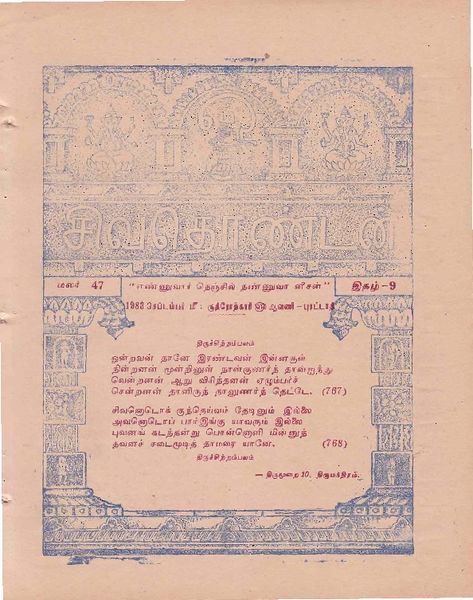 சிவதொண்டன்
மலர் 47 "எண்ணுவார் நெஞ்சில் நண்ணுவா னீசன்" இதழ்-9
1983 செப்டம்பர் மீ : ருத்ரோத்காரி ௵ ஆவணி - புரட்டாதி
திருச்சிற்றம்பலம்
ஒன்றவன் தானே இரண்டவன் இன்னருள்
நின்றனன் மூன்றினுள் நான்குணர்ந் தான்ஐந்து
வென்றனன் ஆறு விரிந்தனன் ஏழும்பர்ச்
சென்றனன் தானிருந் தானுணர்ந் தெட்டே. (767)
சிவனொடொக் குந்தெய்வம் தேடினும் இல்லை
அவனொடொப் பார்இங்கு யாவரும் இல்லை
புவனங் கடந்தன்று பொன்னொளி மின்னுந்
தவனச் சடைமுடித் தாமரை யானே. (768)
திருச்சிற்றம்பலம்
— திருமுறை 10, திருமந்திரம்.